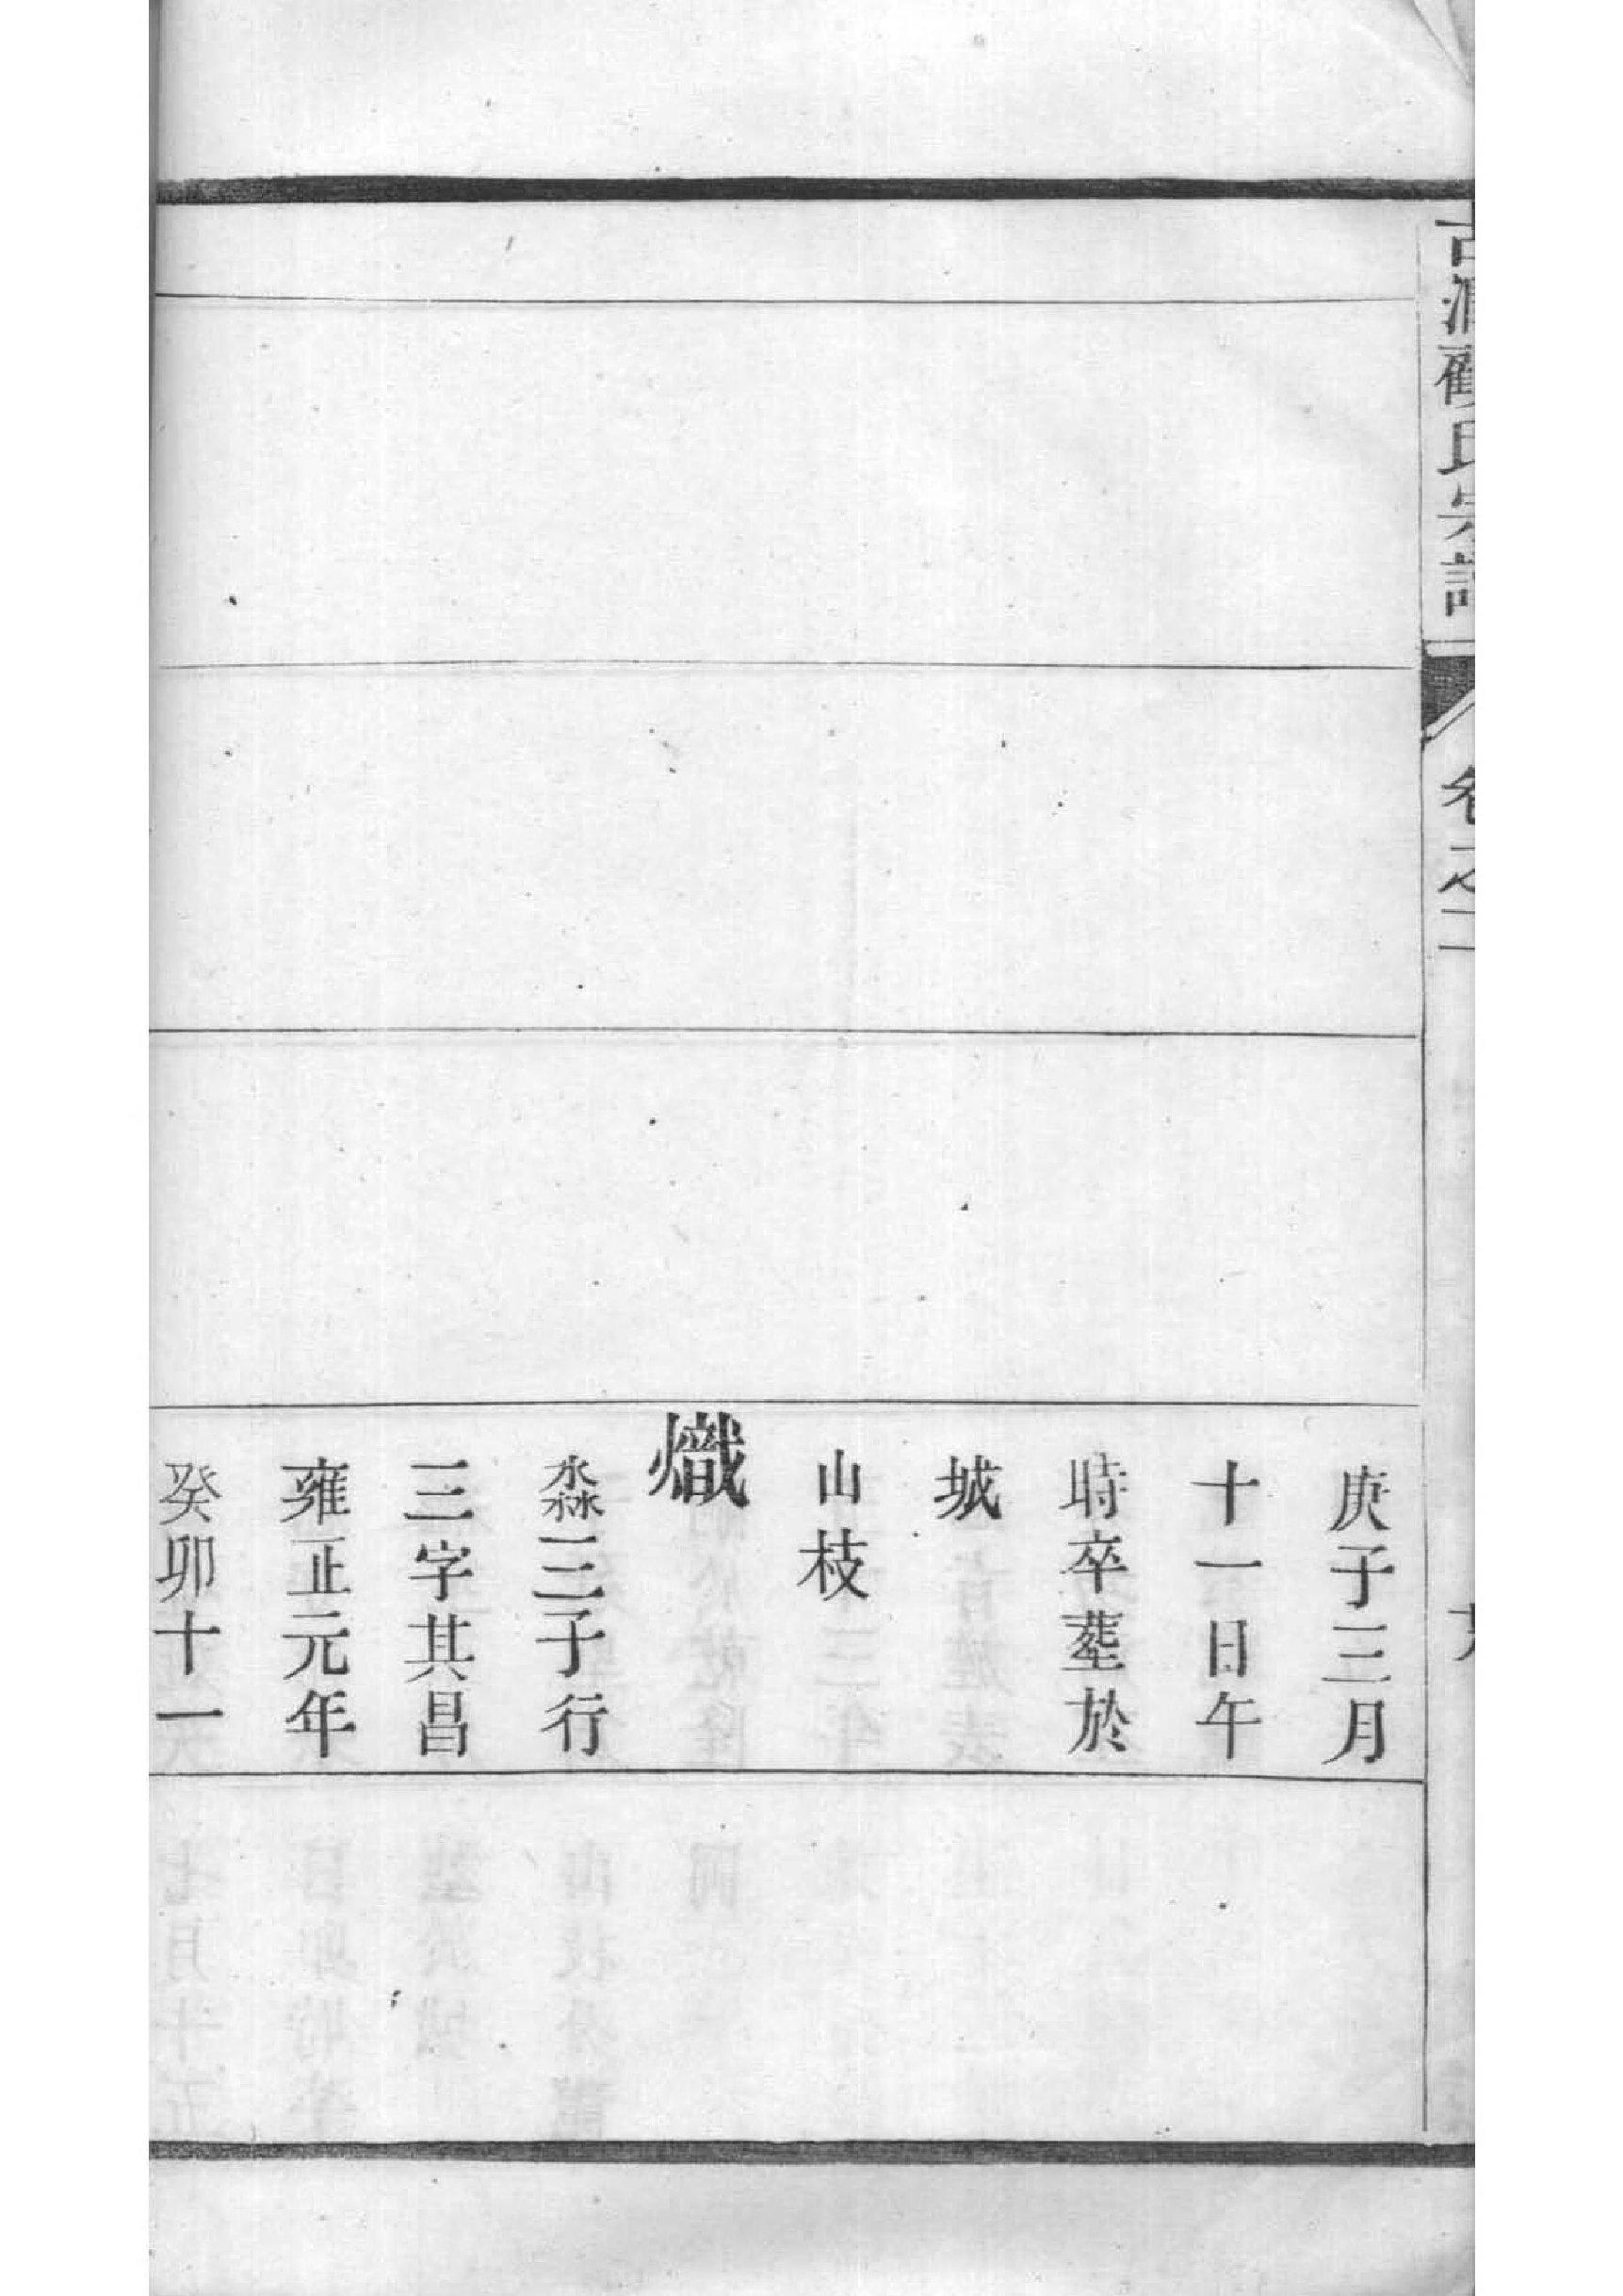 古浦顧氏宗譜
卷之二
庚子三月
十一日午
時卒塟於
城
山枝
熾
淼三子行
三字其昌
雍正元年
癸卯十一